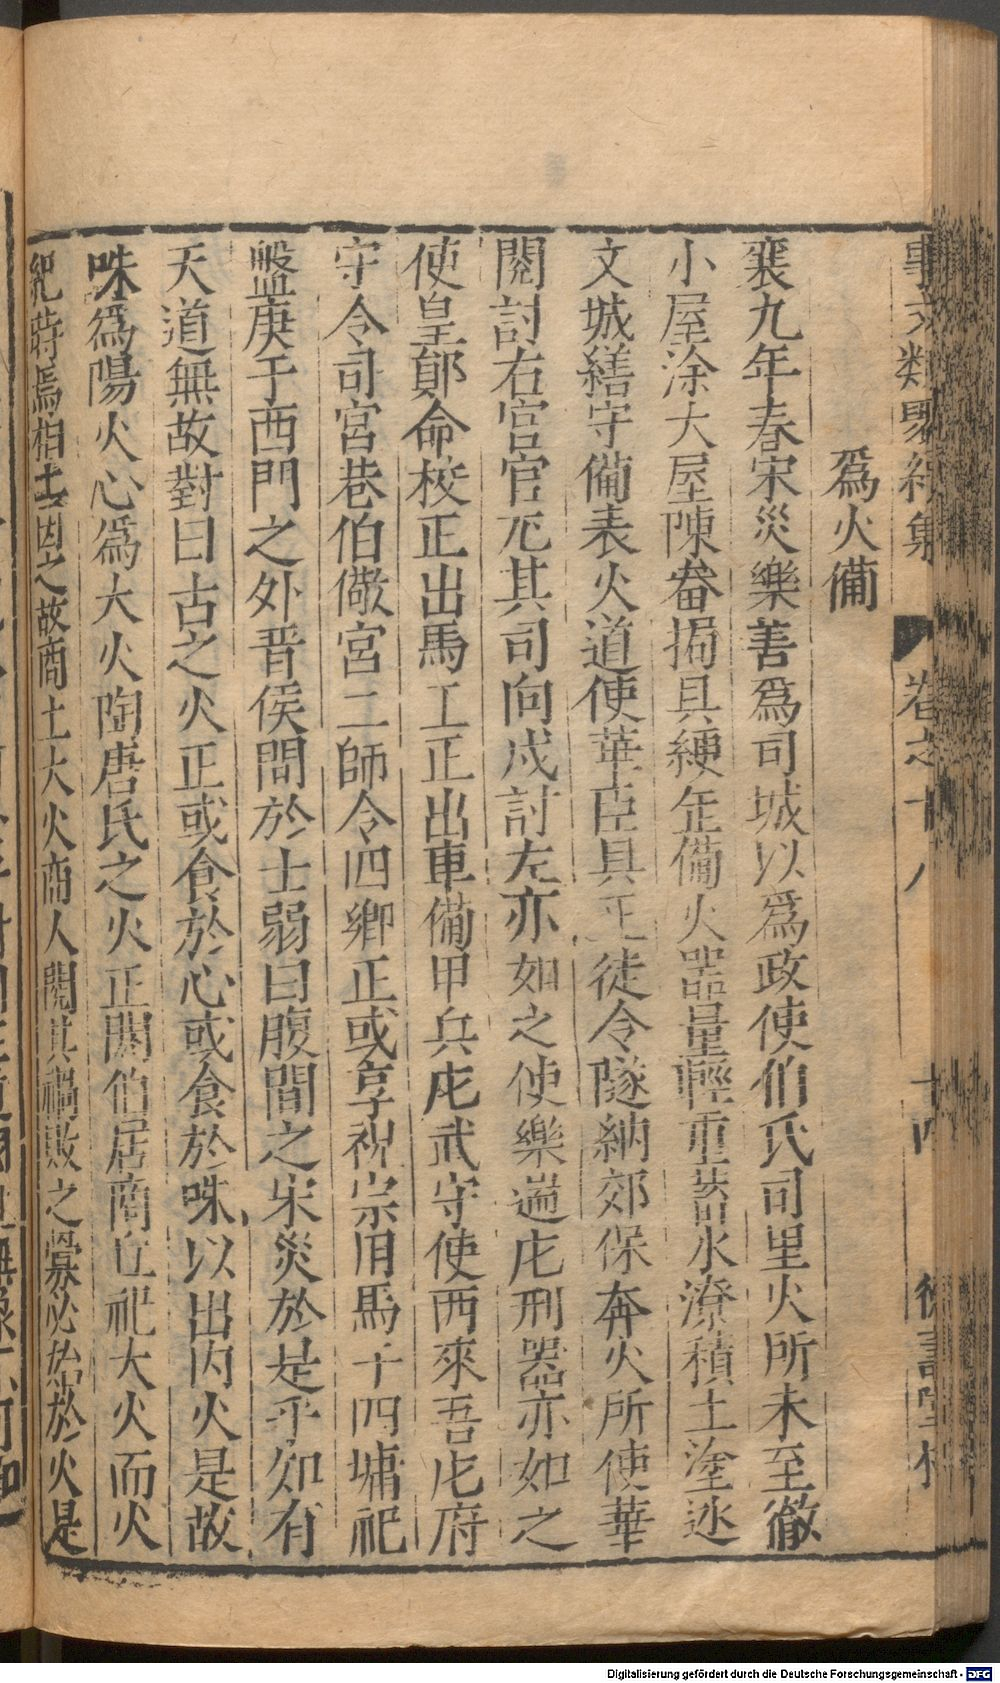 事文類聚續集 卷之十八 十四
爲火備
襄九年春宋災樂善爲司城以爲政使伯氏司里火所未至徹
小屋涂大屋陳畚挶具綆缶備火器量輕重蓄水潦積土塗廵
文城繕守備表火道使華臣具正徒令隧納郊保奔火所使華
閱討右宫官庀其司向戍討左亦如之使樂遄庀刑器亦如之
使皇鄖命校正出馬工正出車備甲兵庀武守使西來吾庀府
守令司宮巷伯儆宮二師令四鄉正或享祝宗用馬十四墉祀
盤庚于西門之外晋侯間於士弱曰腹間之宋災於是乎知有
天道無故對曰古之火正或食於心或食於咮以出内火是故
咮爲陽火心爲大火陶唐氏之火正閼伯居商丘祀大火而火
紀蒔焉相土因之故商土大火商人閱其禍敗之釁必始於火是
Digitalisierung gefördert durch die Deutsche Forschungsgemeinschaft - DFG